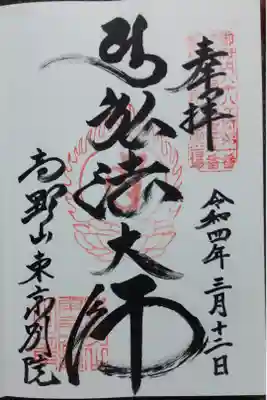 奉拝
令和四年三月十二日
弘法大師
高野山東京別院